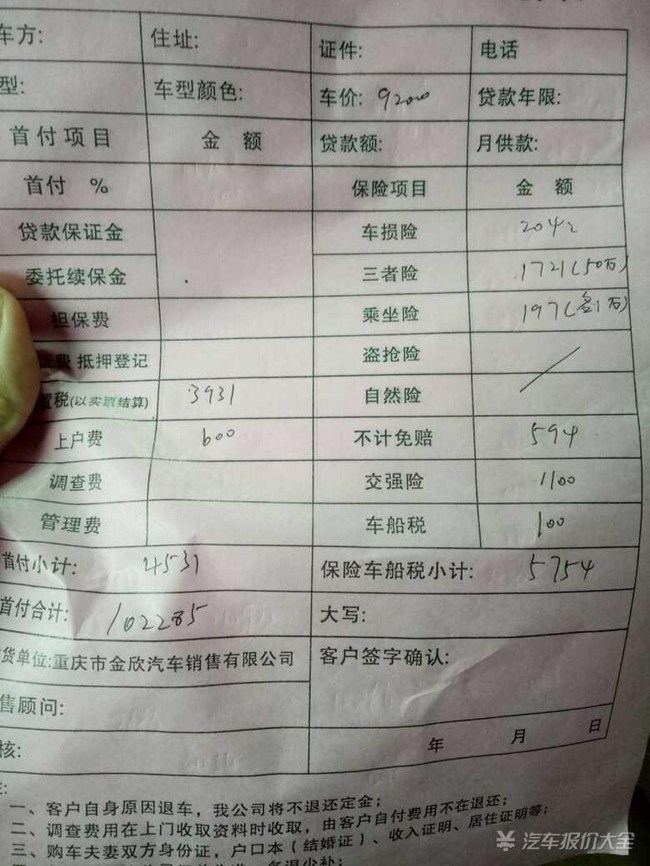 车方: 住址: 证件: 电话
型: 车型颜色: 车价: 92000 贷款年限:
首付项目 金额 贷款额: 月供款:
首付 % 保险项目 金额
贷款保证金 车损险 2042
委托续保金 三者险 1721(50万)
担保费 乘坐险 197(
证费 抵押登记 盗抢险
置税(以实票结算) 3931 自然险
上户费 600 不计免赔 594
调查费 交强险 1100
管理费 车船税 100
首付小计: 4531 保险车船税小计: 5754
首付合计: 102285 大写:
货单位:重庆市金欣汽车销售有限公司 客户签字确认:
售顾问:
核: 年 月 日
一、客户自身原因退车，我公司将不退还定金；
二、调查费用在上门收取资料时收取，由客户自付费用不在退还；
三、购车夫妻双方身份证，户口本（结婚证）、收入证明、居住证明等；
汽车报价大全